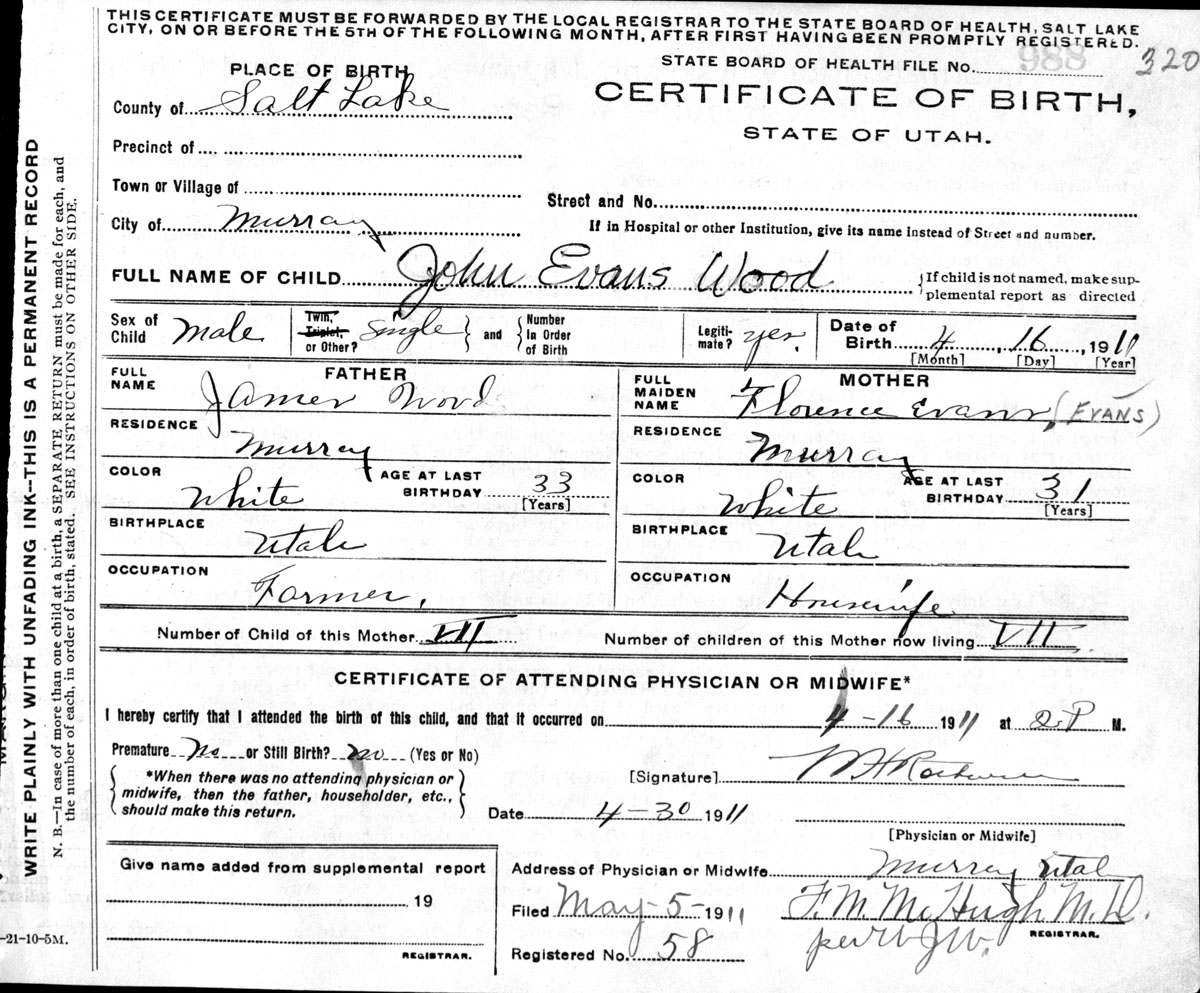 THIS CERTIFICATE MUST BE FORWARDED BY THE LOCAL REGISTRAR TO THE STATE BOARD OF HEALTH, SALT LAKE
CITY, ON OR BEFORE THE 5TH OF THE FOLLOWING MONTH, AFTER FIRST HAVING BEEN PROMPTLY REGISTERED.
STATE BOARD OF HEALTH FILE No. 988 320
PLACE OF BIRTH
CERTIFICATE OF BIRTH,
STATE OF UTAH.
County of Salt Lake
Precinct of
Town or Village of
Street and No.
City of Murray
If in Hospital or other Institution, give its name instead of Street and number.
FULL NAME OF CHILD John Evans Wood
{If child is not named, make sup-
plemental report as directed
Sex of Child Male
Twin, Triplet, or Other? Single } and { Number In Order of Birth
Legiti-mate? yes.
Date of Birth 4, 16, 1911
[Month] [Day] [Year]
FATHER
FULL NAME James Wood
RESIDENCE Murray
COLOR White
AGE AT LAST BIRTHDAY 33
[Years]
BIRTHPLACE Utah
OCCUPATION Farmer,
MOTHER
FULL MAIDEN NAME Florence Evans, (EVANS)
RESIDENCE Murray
COLOR White
AGE AT LAST BIRTHDAY 31
[Years]
BIRTHPLACE Utah
OCCUPATION Housewife
Number of Child of this Mother VII
Number of children of this Mother now living VII
CERTIFICATE OF ATTENDING PHYSICIAN OR MIDWIFE*
I hereby certify that I attended the birth of this child, and that it occurred on 4-16 1911 at P M.
Premature No or Still Birth? no (Yes or No)
{*When there was no attending physician or
midwife, then the father, householder, etc.,
should make this return.}
[Signature]
Date 4-30 1911
[Physician or Midwife]
Give name added from supplemental report
19
REGISTRAR.
Address of Physician or Midwife Murray Utah
Filed May-5- 1911 F. M. McHugh M.D.
REGISTRAR.
Registered No. 58 per
WRITE PLAINLY WITH UNFADING INK--THIS IS A PERMANENT RECORD
N. B.—In case of more than one child at a birth, a SEPARATE RETURN must be made for each, and
the number of each, in order of birth, stated. SEE INSTRUCTIONS ON OTHER SIDE.
-21-10-5M.